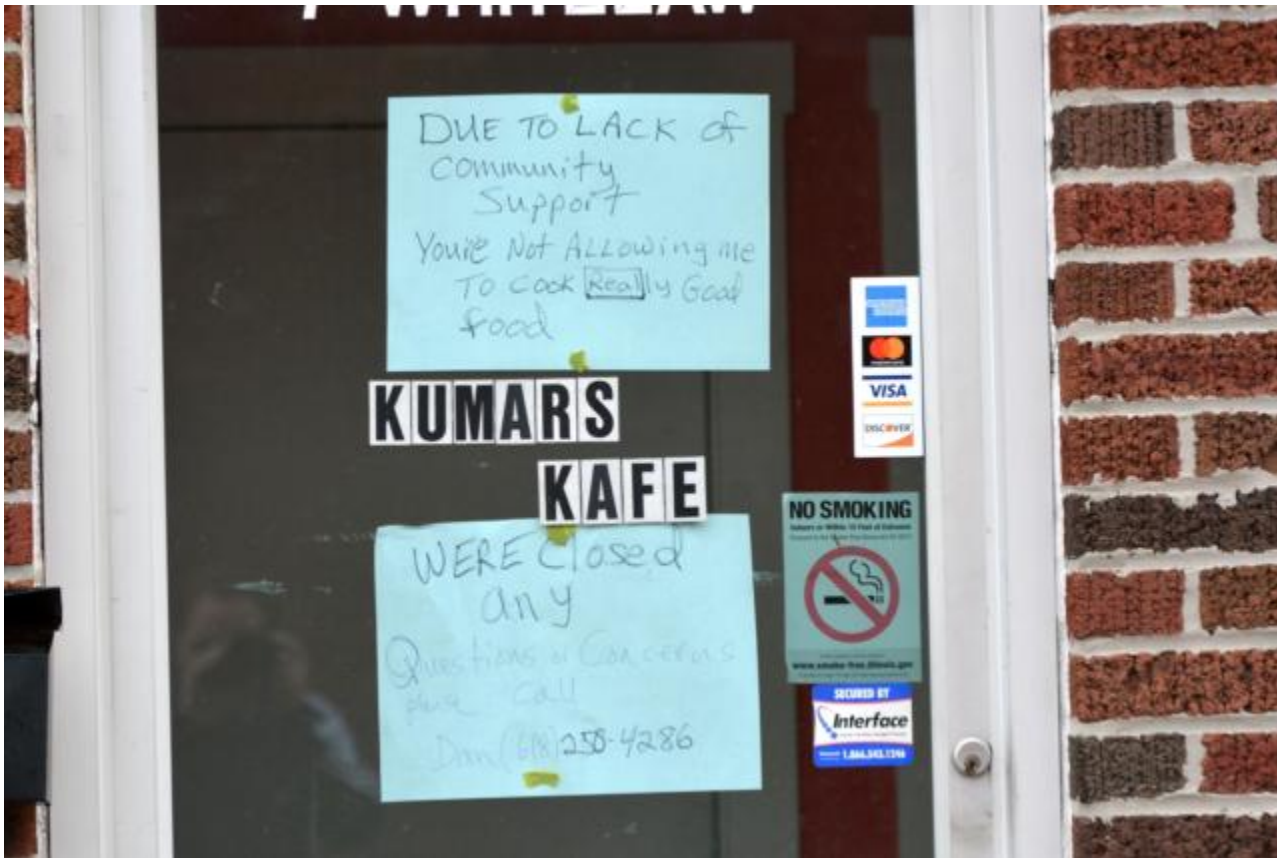 WHITELAW
DUE TO LACK of
Community
Support
You're Not Allowing me
To Cook Really Good
food
KUMARS
KAFE
WERE Closed
any
Questions or Concerns
call
(618) 258-4286
VISA
DISCOVER
NO SMOKING
www.smoke-free.illinois.gov
SECURED BY
Interface